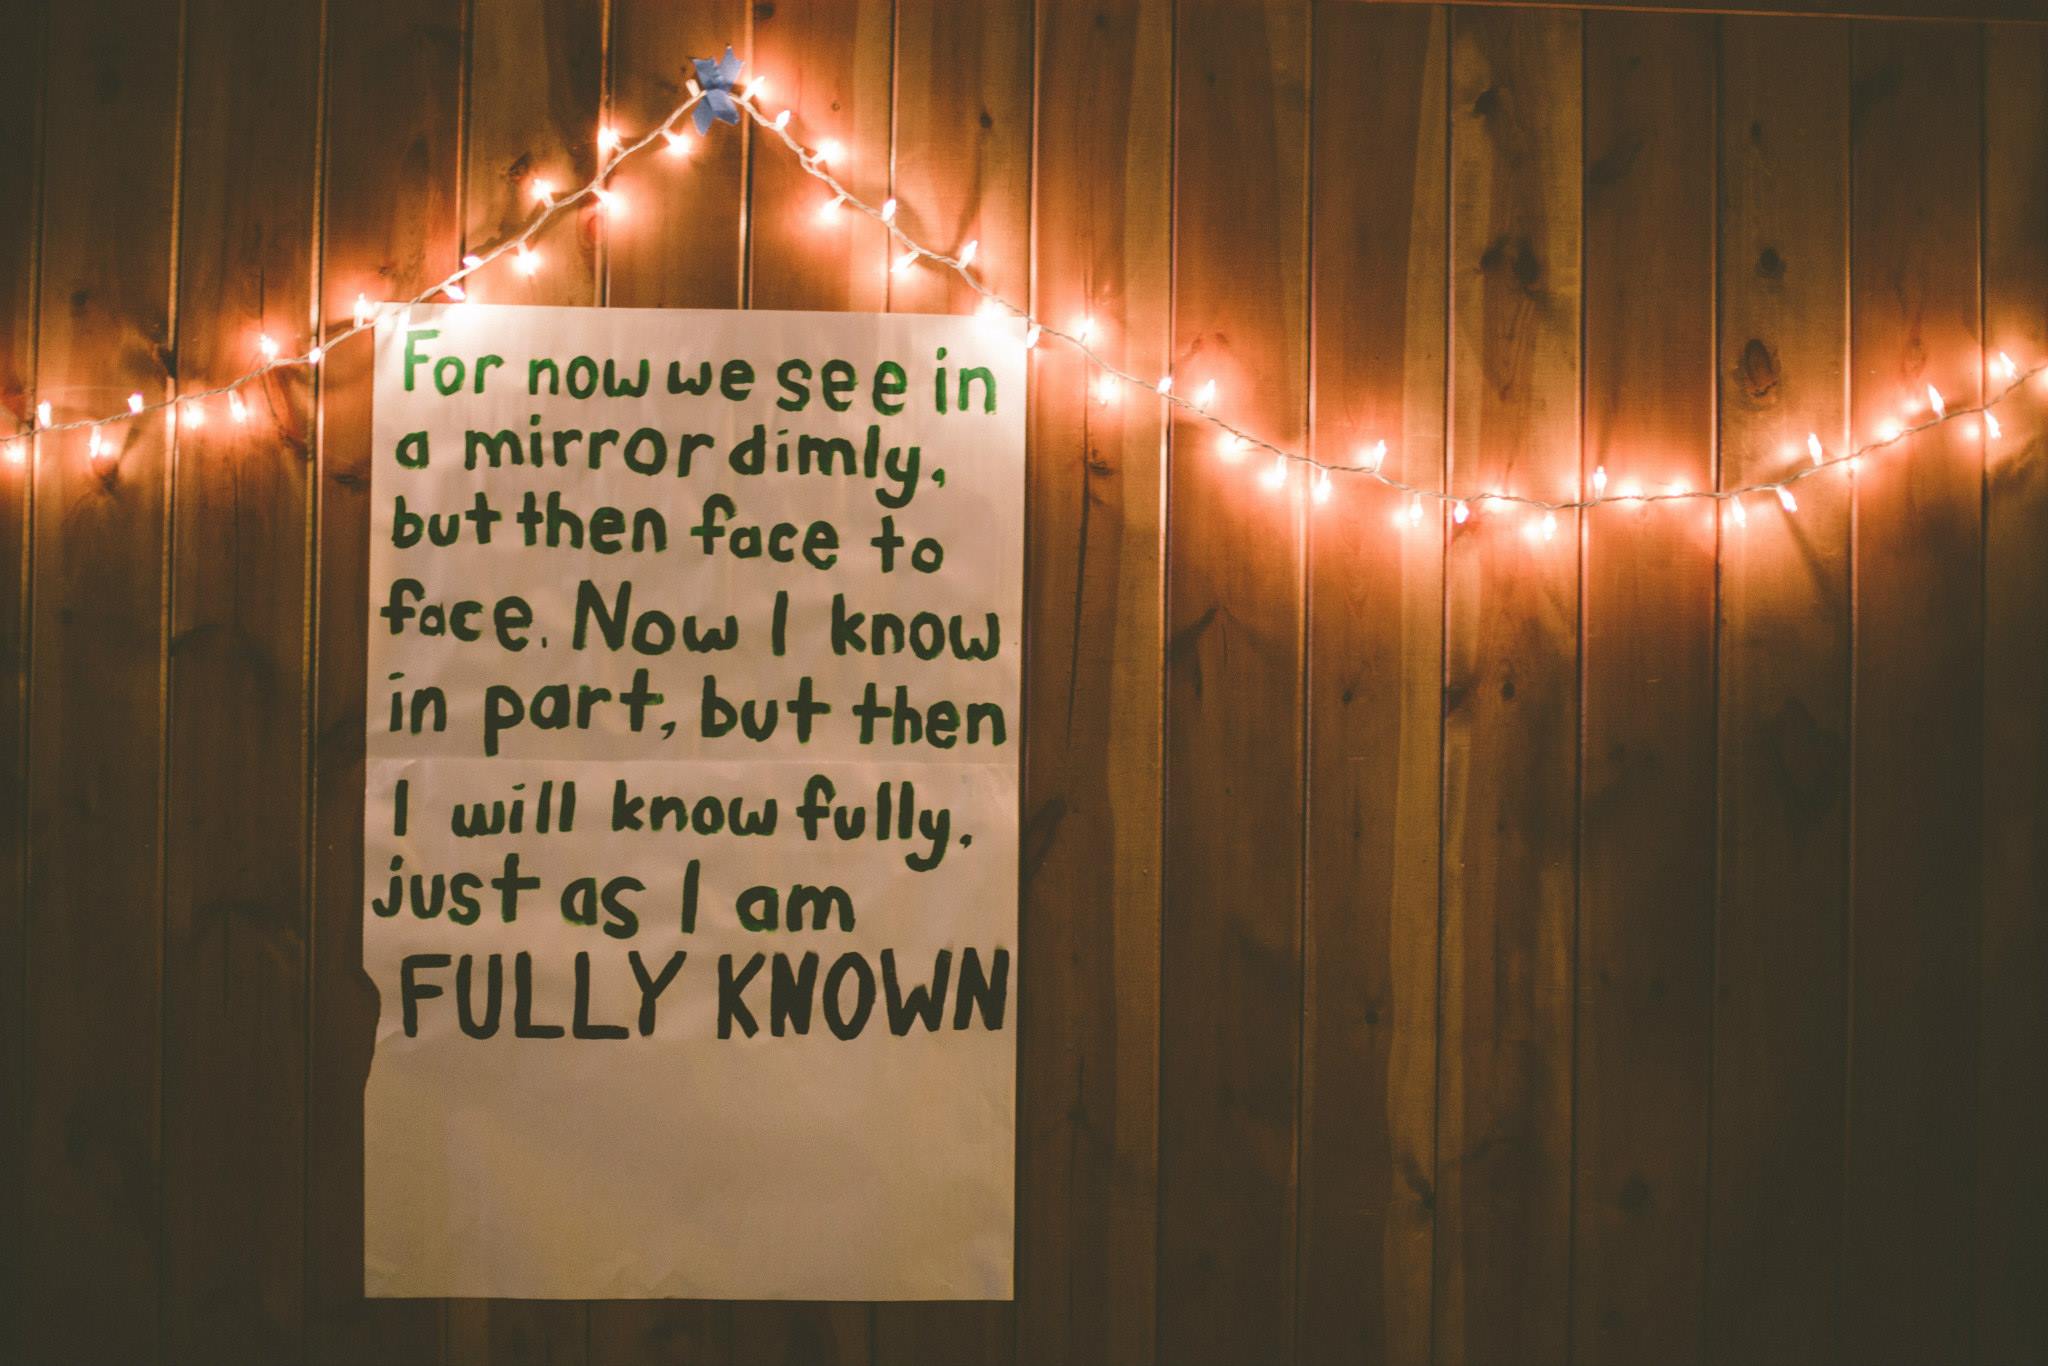 For now we see in
a mirror dimly,
but then face to
face. Now I know
in part, but then
I will know fully,
just as I am
FULLY KNOWN